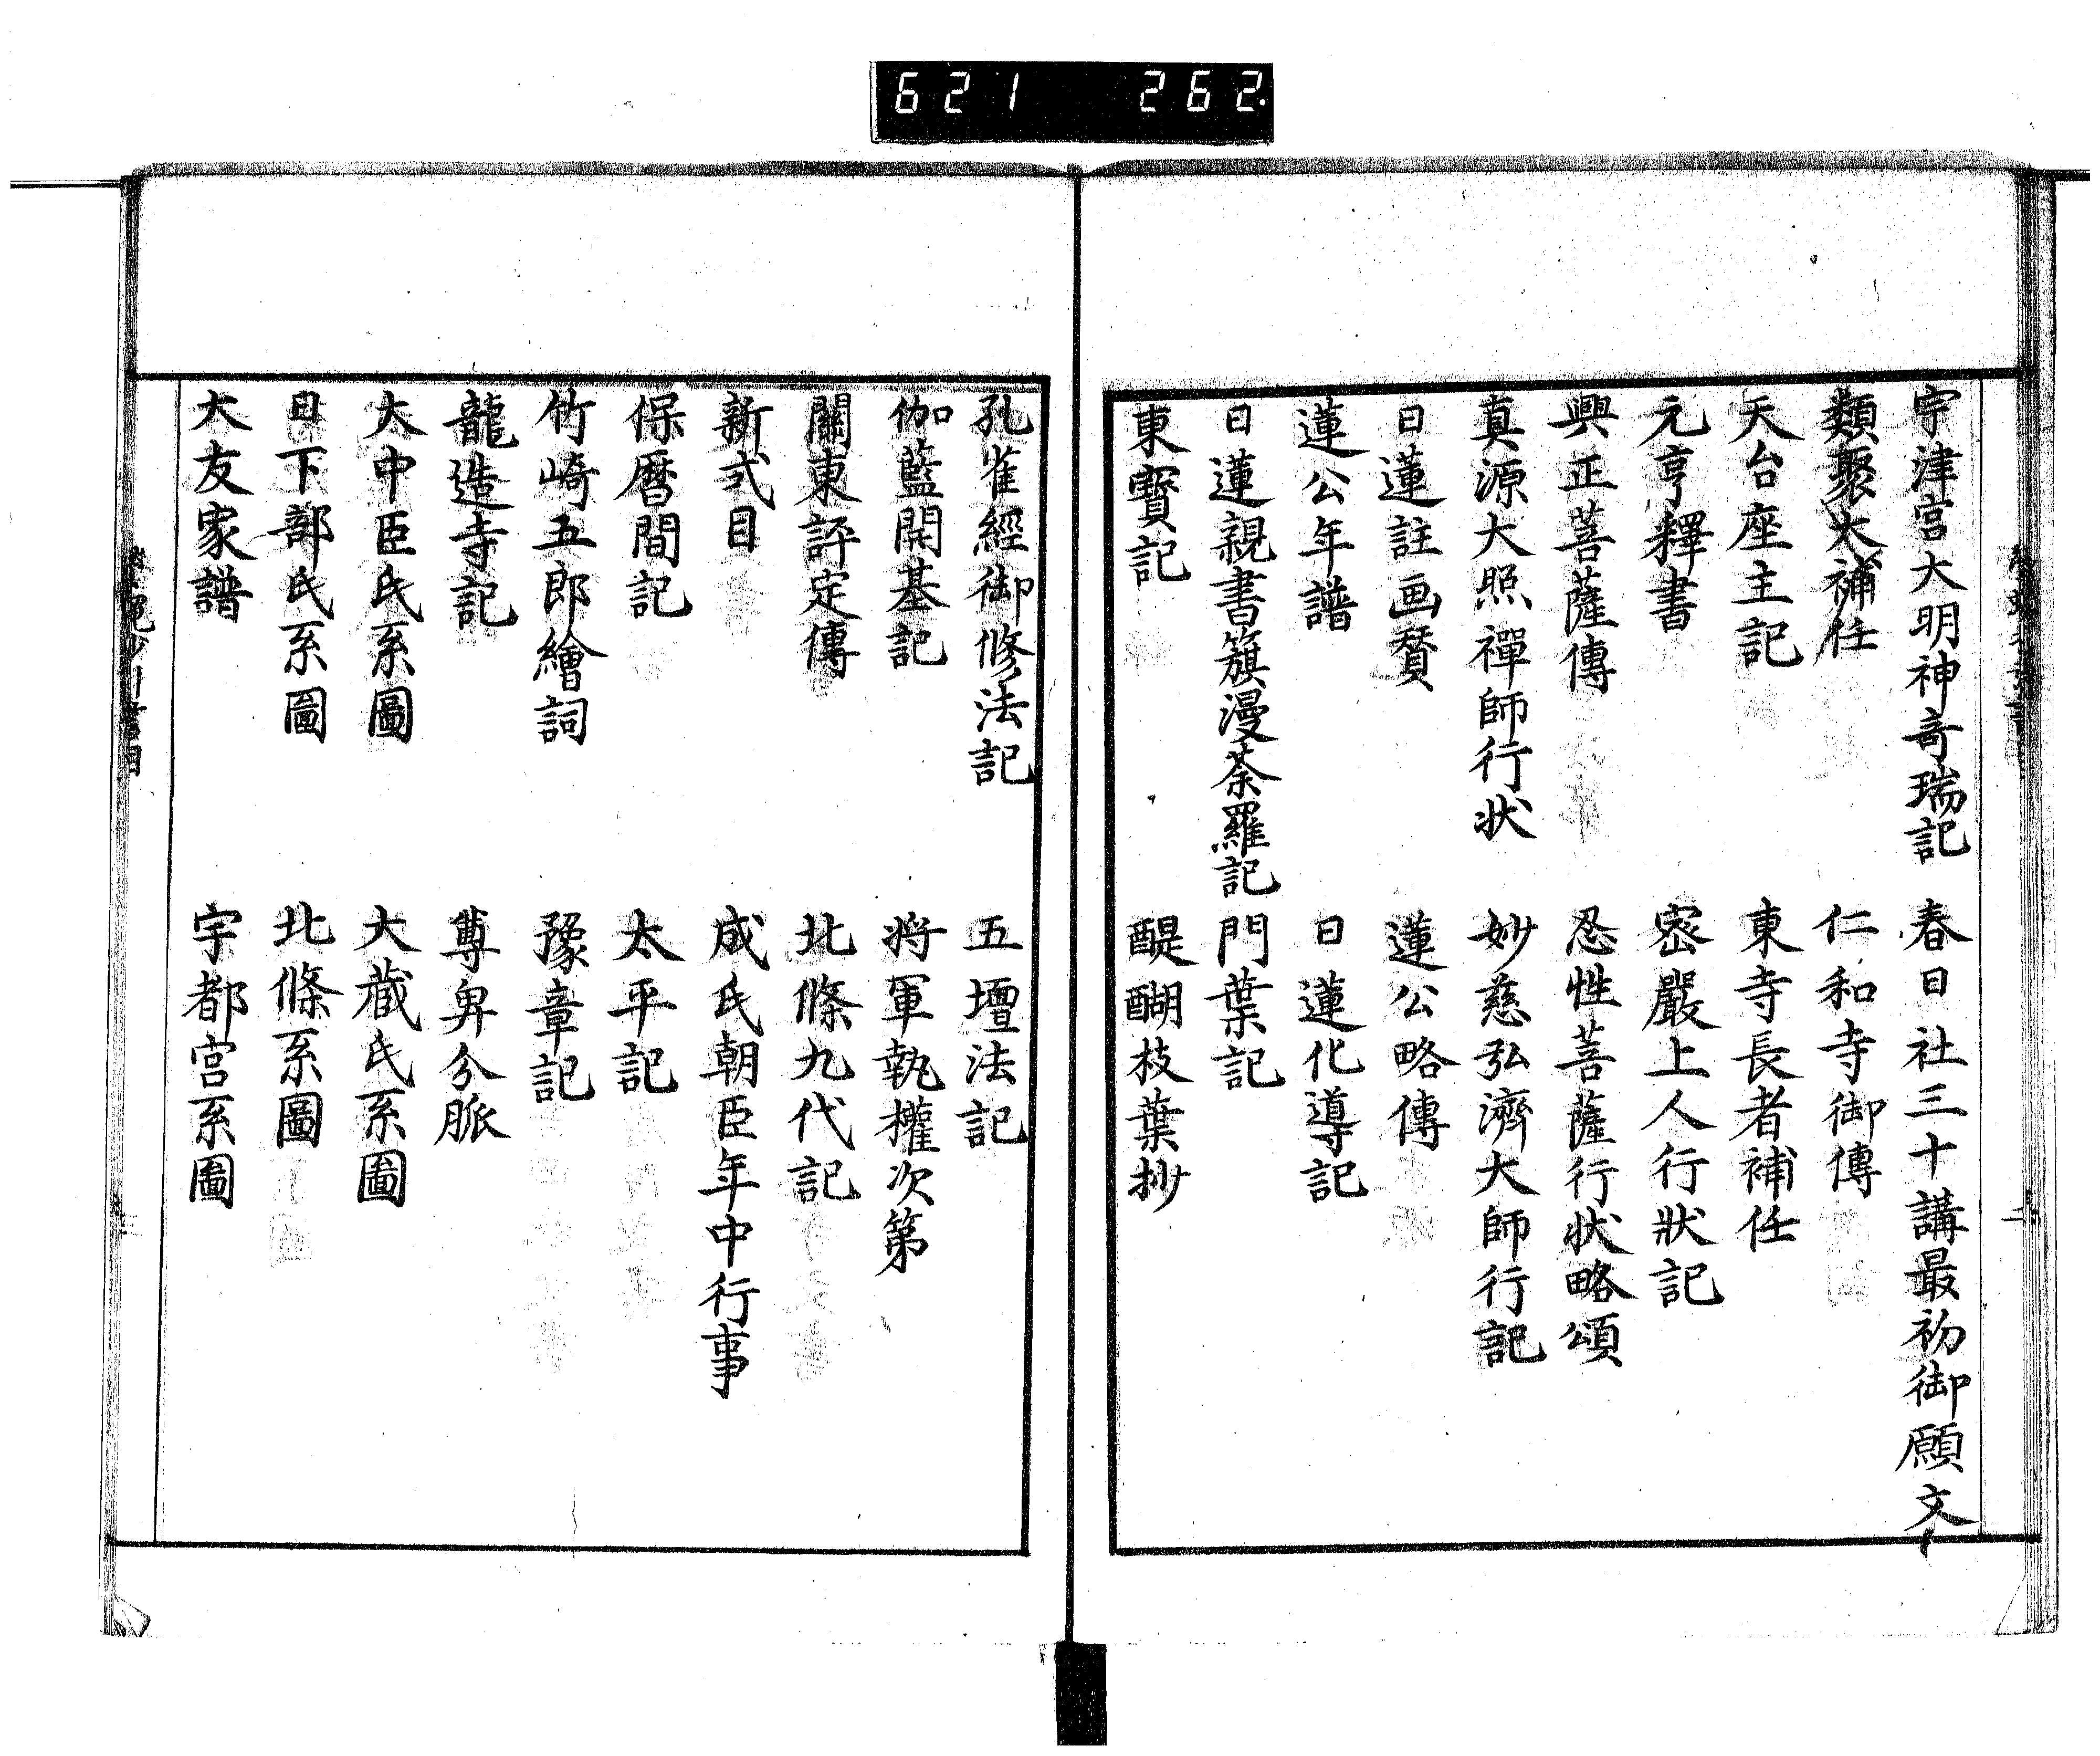 621 262.
宇津宮大明神奇瑞記 春日社三十講最初御願文
類聚大補任 仁和寺御傳
天台座主記 東寺長者補任
元亨釋書 密嚴上人行狀記
興正菩薩傳 忍性菩薩行状略頌
真源大照禪師行状 妙慈弘濟大師行記
日蓮註画賛 蓮公略傳
蓮公年譜 日蓮化導記
日蓮親書籏漫荼羅記 門葉記
東寳記 醍醐枝葉抄
孔雀經御修法記 五壇法記
伽藍開基記 将軍執權次第
關東評定傳 北條九代記
新式目 成氏朝臣年中行事
保暦間記 太平記
竹崎五郎繪詞 豫章記
龍造寺記 尊卑分脈
大中臣氏系圖 大蔵氏系圖
日下部氏系圖 北條系圖
大友家譜 宇都宮系圖